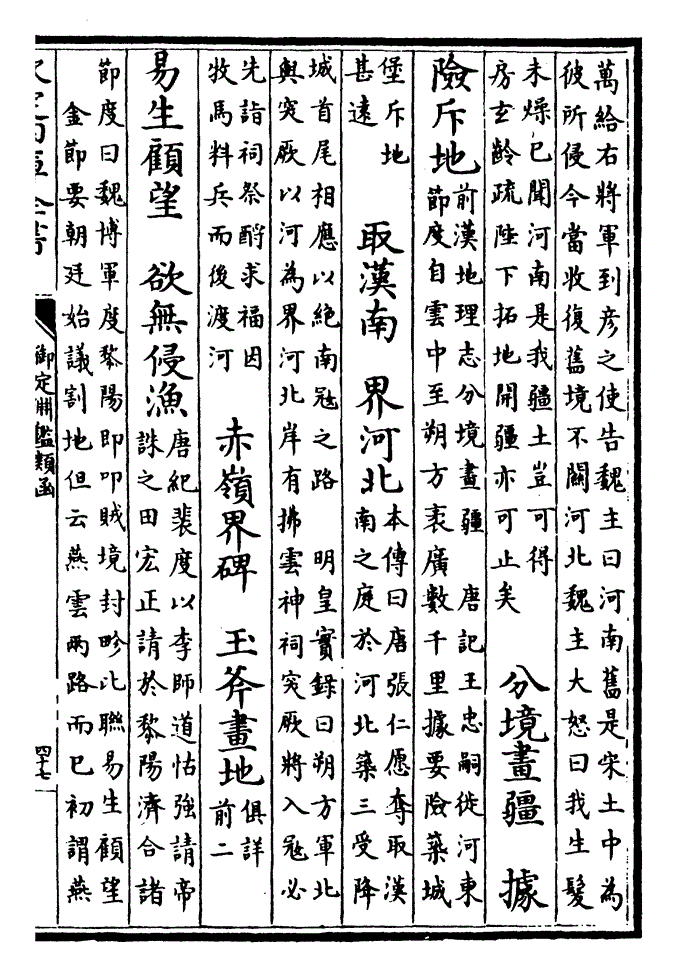 萬給右將軍到彦之使告魏主曰河南舊是宋土中為
彼所侵今當收復舊境不關河北魏主大怒曰我生髮
未燥已聞河南是我疆土豈可得
房玄齡疏陛下拓地開疆亦可止矣
分境畫疆　據
險斥地
前漢地理志分境畫疆　唐記王忠嗣徙河東
節度自雲中至朔方袤廣數千里據要險築城
堡斥地
甚遠
取漢南　界河北
本傳曰唐張仁愿奪取漢
南之庭於河北築三受降
城首尾相應以絕南冦之路　明皇實錄曰朔方軍北
與突厥以河為界河北岸有拂雲神祠突厥將入冦必
先詣祠祭酹求福因
牧馬料兵而後渡河
赤嶺界碑　玉斧畫地
俱詳
前二
易生顧望　欲無侵漁
唐紀裴度以李師道怙強請帝
誅之田宏正請於黎陽濟合諸
節度曰魏博軍度黎陽即叩賊境封畛比聯易生顧望
金節要朝廷始議割地但云燕雲兩路而已初謂燕
御定淵鑑類函
四十七